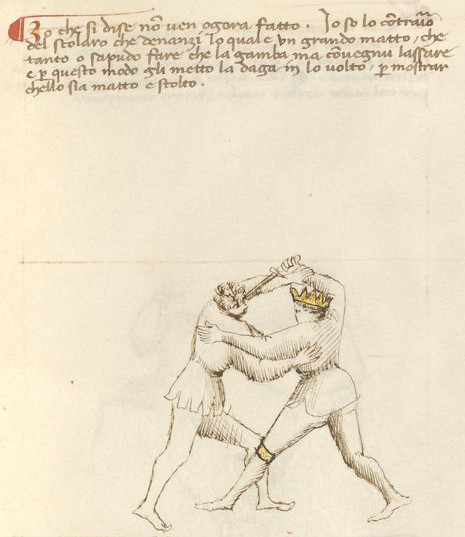 Zo che si dise nō ven ogora fatto. Io so lo cōtrario
del scolaro che denanzi lo qual e un grando matto, che
tanto o sapudo fare che la gamba ma cōvegnu lassare
e p questo modo gli metto la daga in lo volto, p mostrar
chello sia matto e stolto.